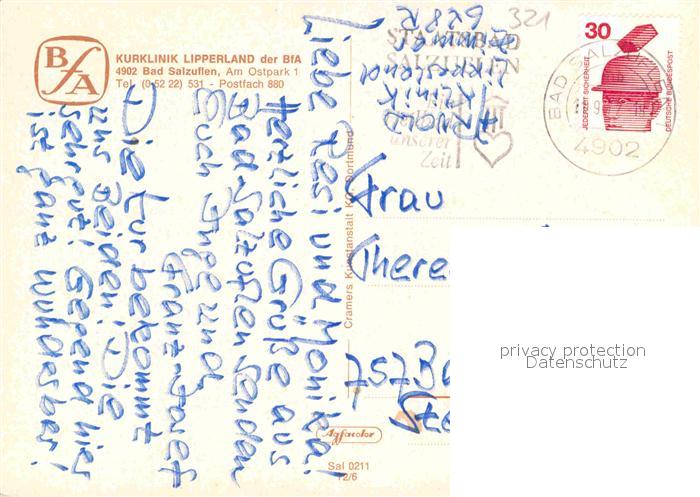 BfA
KURKLINIK LIPPERLAND der BfA
4902 Bad Salzuflen, Am Ostpark 1
Tel. (0 52 22) 531 - Postfach 880
321
STAATSBAD
SALZUFLEN
unserer
Zeit
BAD SALZUFLEN
4902
30
JEDERZEIT SICHERHEIT
DEUTSCHE BUNDESPOST
ARNOLD
Klinik
Lipperland
Zimmer
628R
Liebe Resi und Monika!
Herzliche Grüße aus
Bad-Salzuflen senden
Euch Inge und
Franz-Josef
Die Kur bekommt
uns Beiden! Die
sehr gut! Gegend hier
ist ganz wunderbar!
Frau
There
757 Ba
Ste
Cramers Kunstanstalt KG, Dortmund
Agfacolor
Sal 0211
12/6
privacy protection
Datenschutz